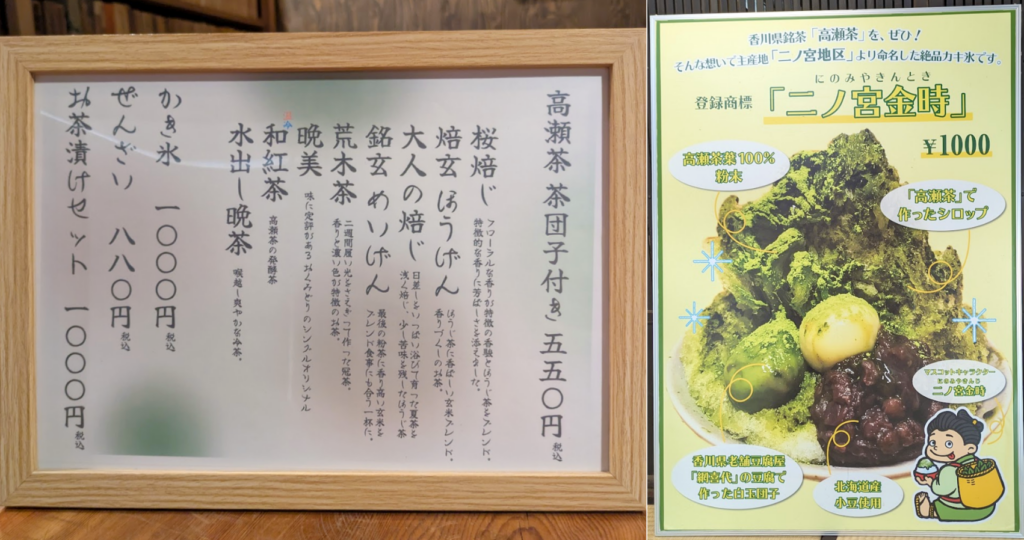 高瀬茶 茶団子付き 五五〇円 税込
桜焙じ
フローラルな香りが特徴の香駿とほうじ茶をブレンド。
特徴的な香りに芳ばしさを添えました。
焙玄 ほうげん
ほうじ茶に香ばしい玄米ブレンド。
香りづくしのお茶。
大人の焙じ
日差しをいっぱい浴びて育った夏茶を
浅く焙じ、少し苦味を残したほうじ茶
銘玄 めいげん
最後の粉茶に香り高い玄米を
ブレンド食事にも合う一杯に。
荒木茶
二週間履い光をさえぎって作った冠茶。
香りと濃い色が特徴のお茶。
晩美
味に定評があるおくみどりのシングルオリジナル
和紅茶
高瀬茶の発酵茶
水出し晩茶
喉越し爽やかな冷茶。
かき氷 一〇〇〇円 税込
ぜんざい 八八〇円 税込
お茶漬けセット 一〇〇〇円 税込
香川県銘茶「高瀬茶」を、ぜひ！
そんな想いで主産地「二ノ宮地区」より命名した絶品カキ氷です。
にのみやきんとき
登録商標「二ノ宮金時」
¥1000
高瀬茶葉100%
粉末
「高瀬茶」で
作ったシロップ
マスコットキャラクター
にのみやきんじ
二ノ宮金時
香川県老舗豆腐屋
「網喜代」の豆腐で
作った白玉団子
北海道産
小豆使用